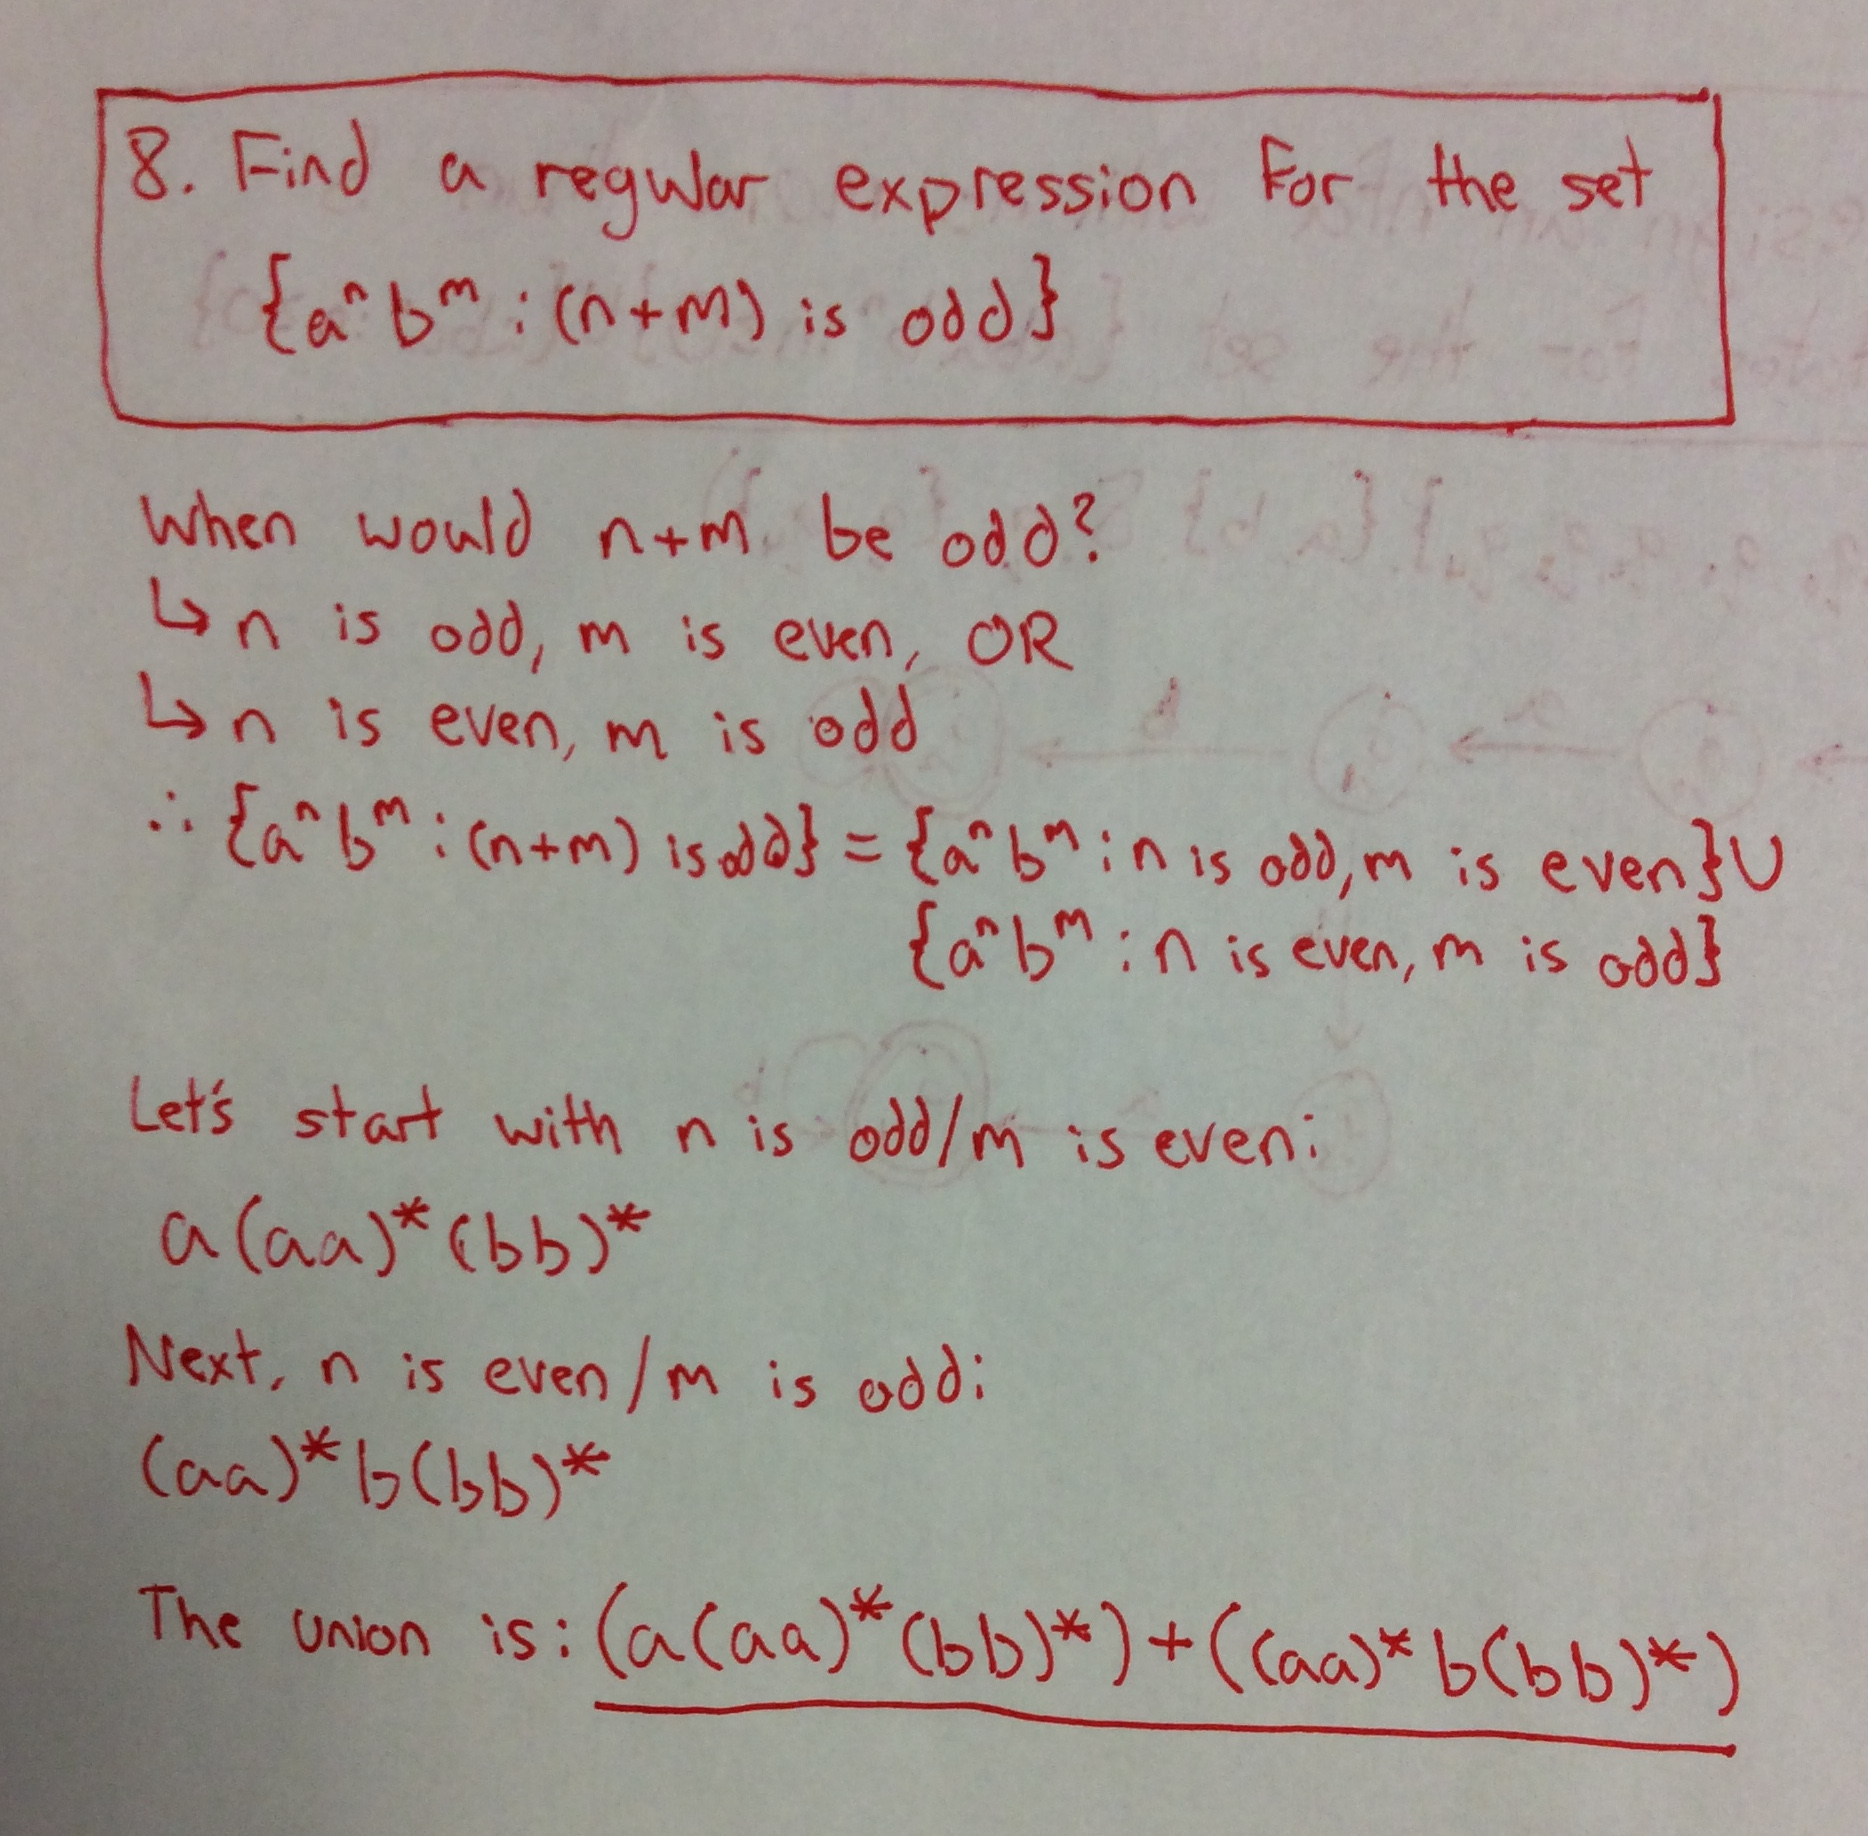 8. Find a regular expression for the set
{aⁿbᵐ : (n+m) is odd}
When would n+m be odd?
↳ n is odd, m is even, OR
↳ n is even, m is odd
∴ {aⁿbᵐ : (n+m) is odd} = {aⁿbᵐ : n is odd, m is even} ∪
{aⁿbᵐ : n is even, m is odd}
Let's start with n is odd/m is even:
a(aa)*(bb)*
Next, n is even/m is odd:
(aa)*b(bb)*
The union is: (a(aa)*(bb)*)+((aa)*b(bb)*)